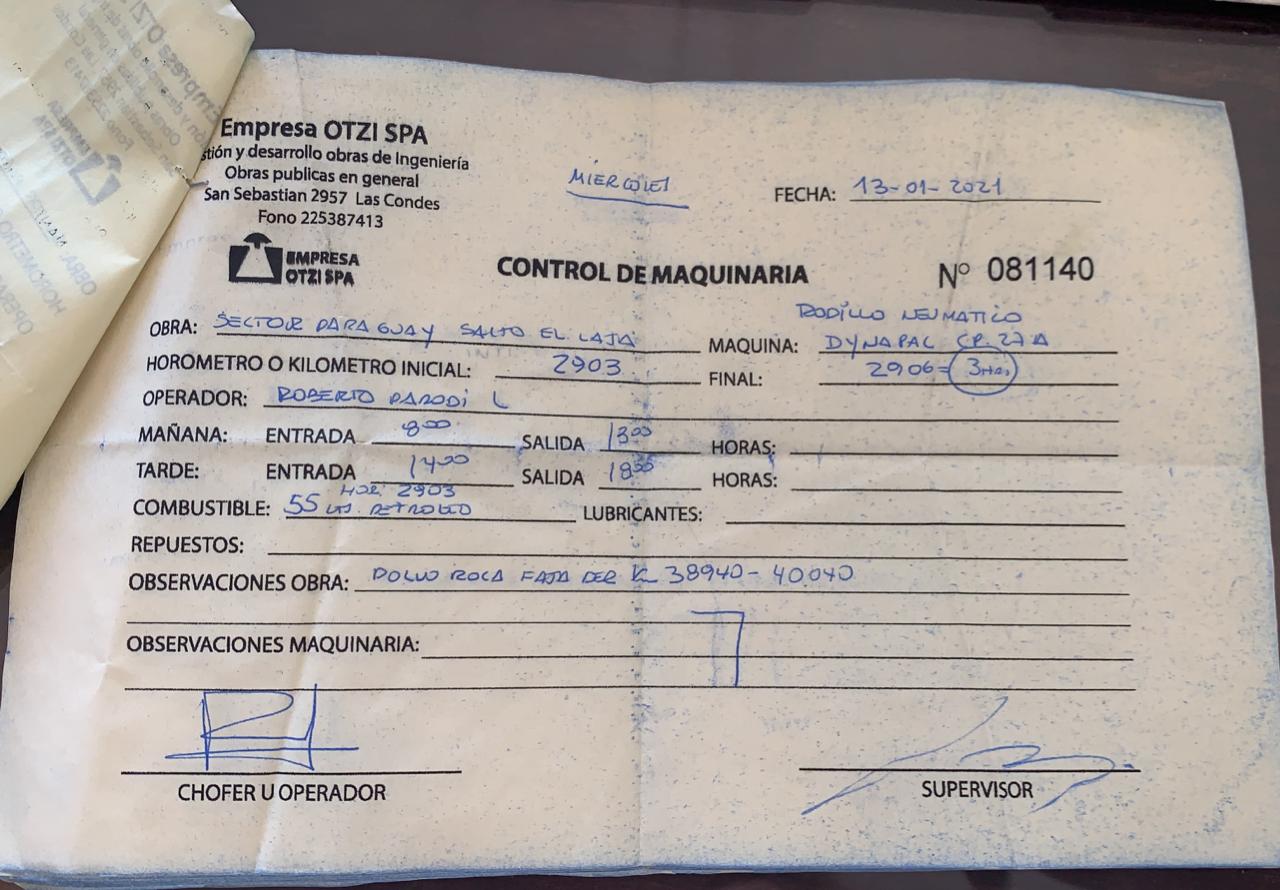 Empresa OTZI SPA
stión y desarrollo obras de Ingeniería
Obras publicas en general
San Sebastian 2957 Las Condes
Fono 225387413
MIERCOLES
FECHA: 13-01-2021
EMPRESA
OTZI SPA
CONTROL DE MAQUINARIA
Nº 081140
OBRA: SECTOR PARAGUAY SALTO EL LAJA
RODILLO NEUMATICO
MAQUINA: DYNAPAC CP 27 A
HOROMETRO O KILOMETRO INICIAL: 2903
FINAL: 2906= 3 HRS
OPERADOR: ROBERTO PARODI L
MAÑANA: ENTRADA 800 SALIDA 1300 HORAS:
TARDE: ENTRADA 1400 SALIDA 18 HORAS:
HOR 2903
COMBUSTIBLE: 55 LTS PETROLEO LUBRICANTES:
REPUESTOS:
OBSERVACIONES OBRA: POLVO ROCA FAJA DER K 38940-40040
OBSERVACIONES MAQUINARIA:
CHOFER U OPERADOR
SUPERVISOR